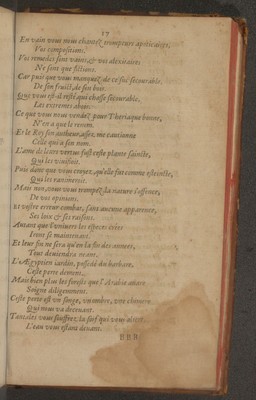 17
En vain vous nous chantez
Vos compositions.
Vos remedes sont vains, & vos alexitaires
Ne sont que fictions.
Car puis que vous manquez de ce suc secourable
De son fruict, de son bois
Que vous est-il resté qui chasse secourable
Les extremes abois.
Ce que vous nous vendez pour Theriaque bonne,
N'en a que le renom.
Et le Roy son autheur
Celle qui a son nom.
L'ame de leurs vertus fust ceste plante saincte,
Qui les vivifioit.
Puis donc que vous voyez, qu'elle fut comme esteincte,
Qui les
Mais non, vous vous trompez, la nature s'offence,
De vos opinions.
Et vostre erreur combat, sans aucune apparence,
Ses loix & ses raisons.
Autant que l'univers les especes crées
Iront se maintenant.
Et leur fin ne sera qu'en la fin des années,
Tout deviendra neant.
L'Ægyptien iardin, possedé du barbare,
Ceste perte dement.
Mais bien plus les forests que l'Arabie avare
Soigne diligemment.
Ceste perte est un songe, un ombre, une
Qui nous va decevant.
Tantales vous souffrez la soif qui vous
L'eau vous estant devant.